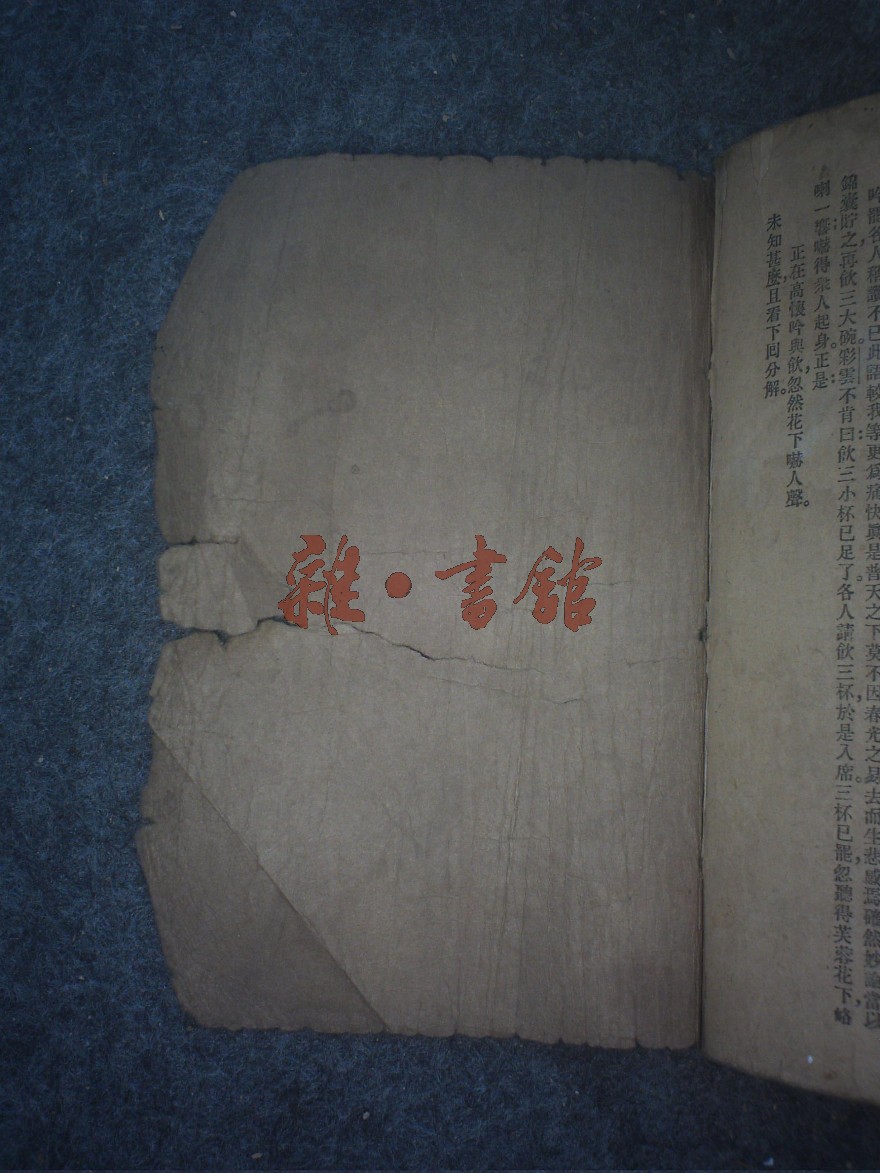 吟罷各人稱讚不已此詩較我等更爲痛快眞是普天之下莫不因春光之易去而生悲感焉確然妙論當以
錦囊貯之再飲三大碗彩雲不肯曰飲三小杯已足了各人請飲三杯於是入席三杯已罷忽聽得芙蓉花下咯
喇一響嚇得衆人起身正是
正在高懷吟與飲忽然花下嚇人聲。
未知甚麼且看下回分解。
雜·書館